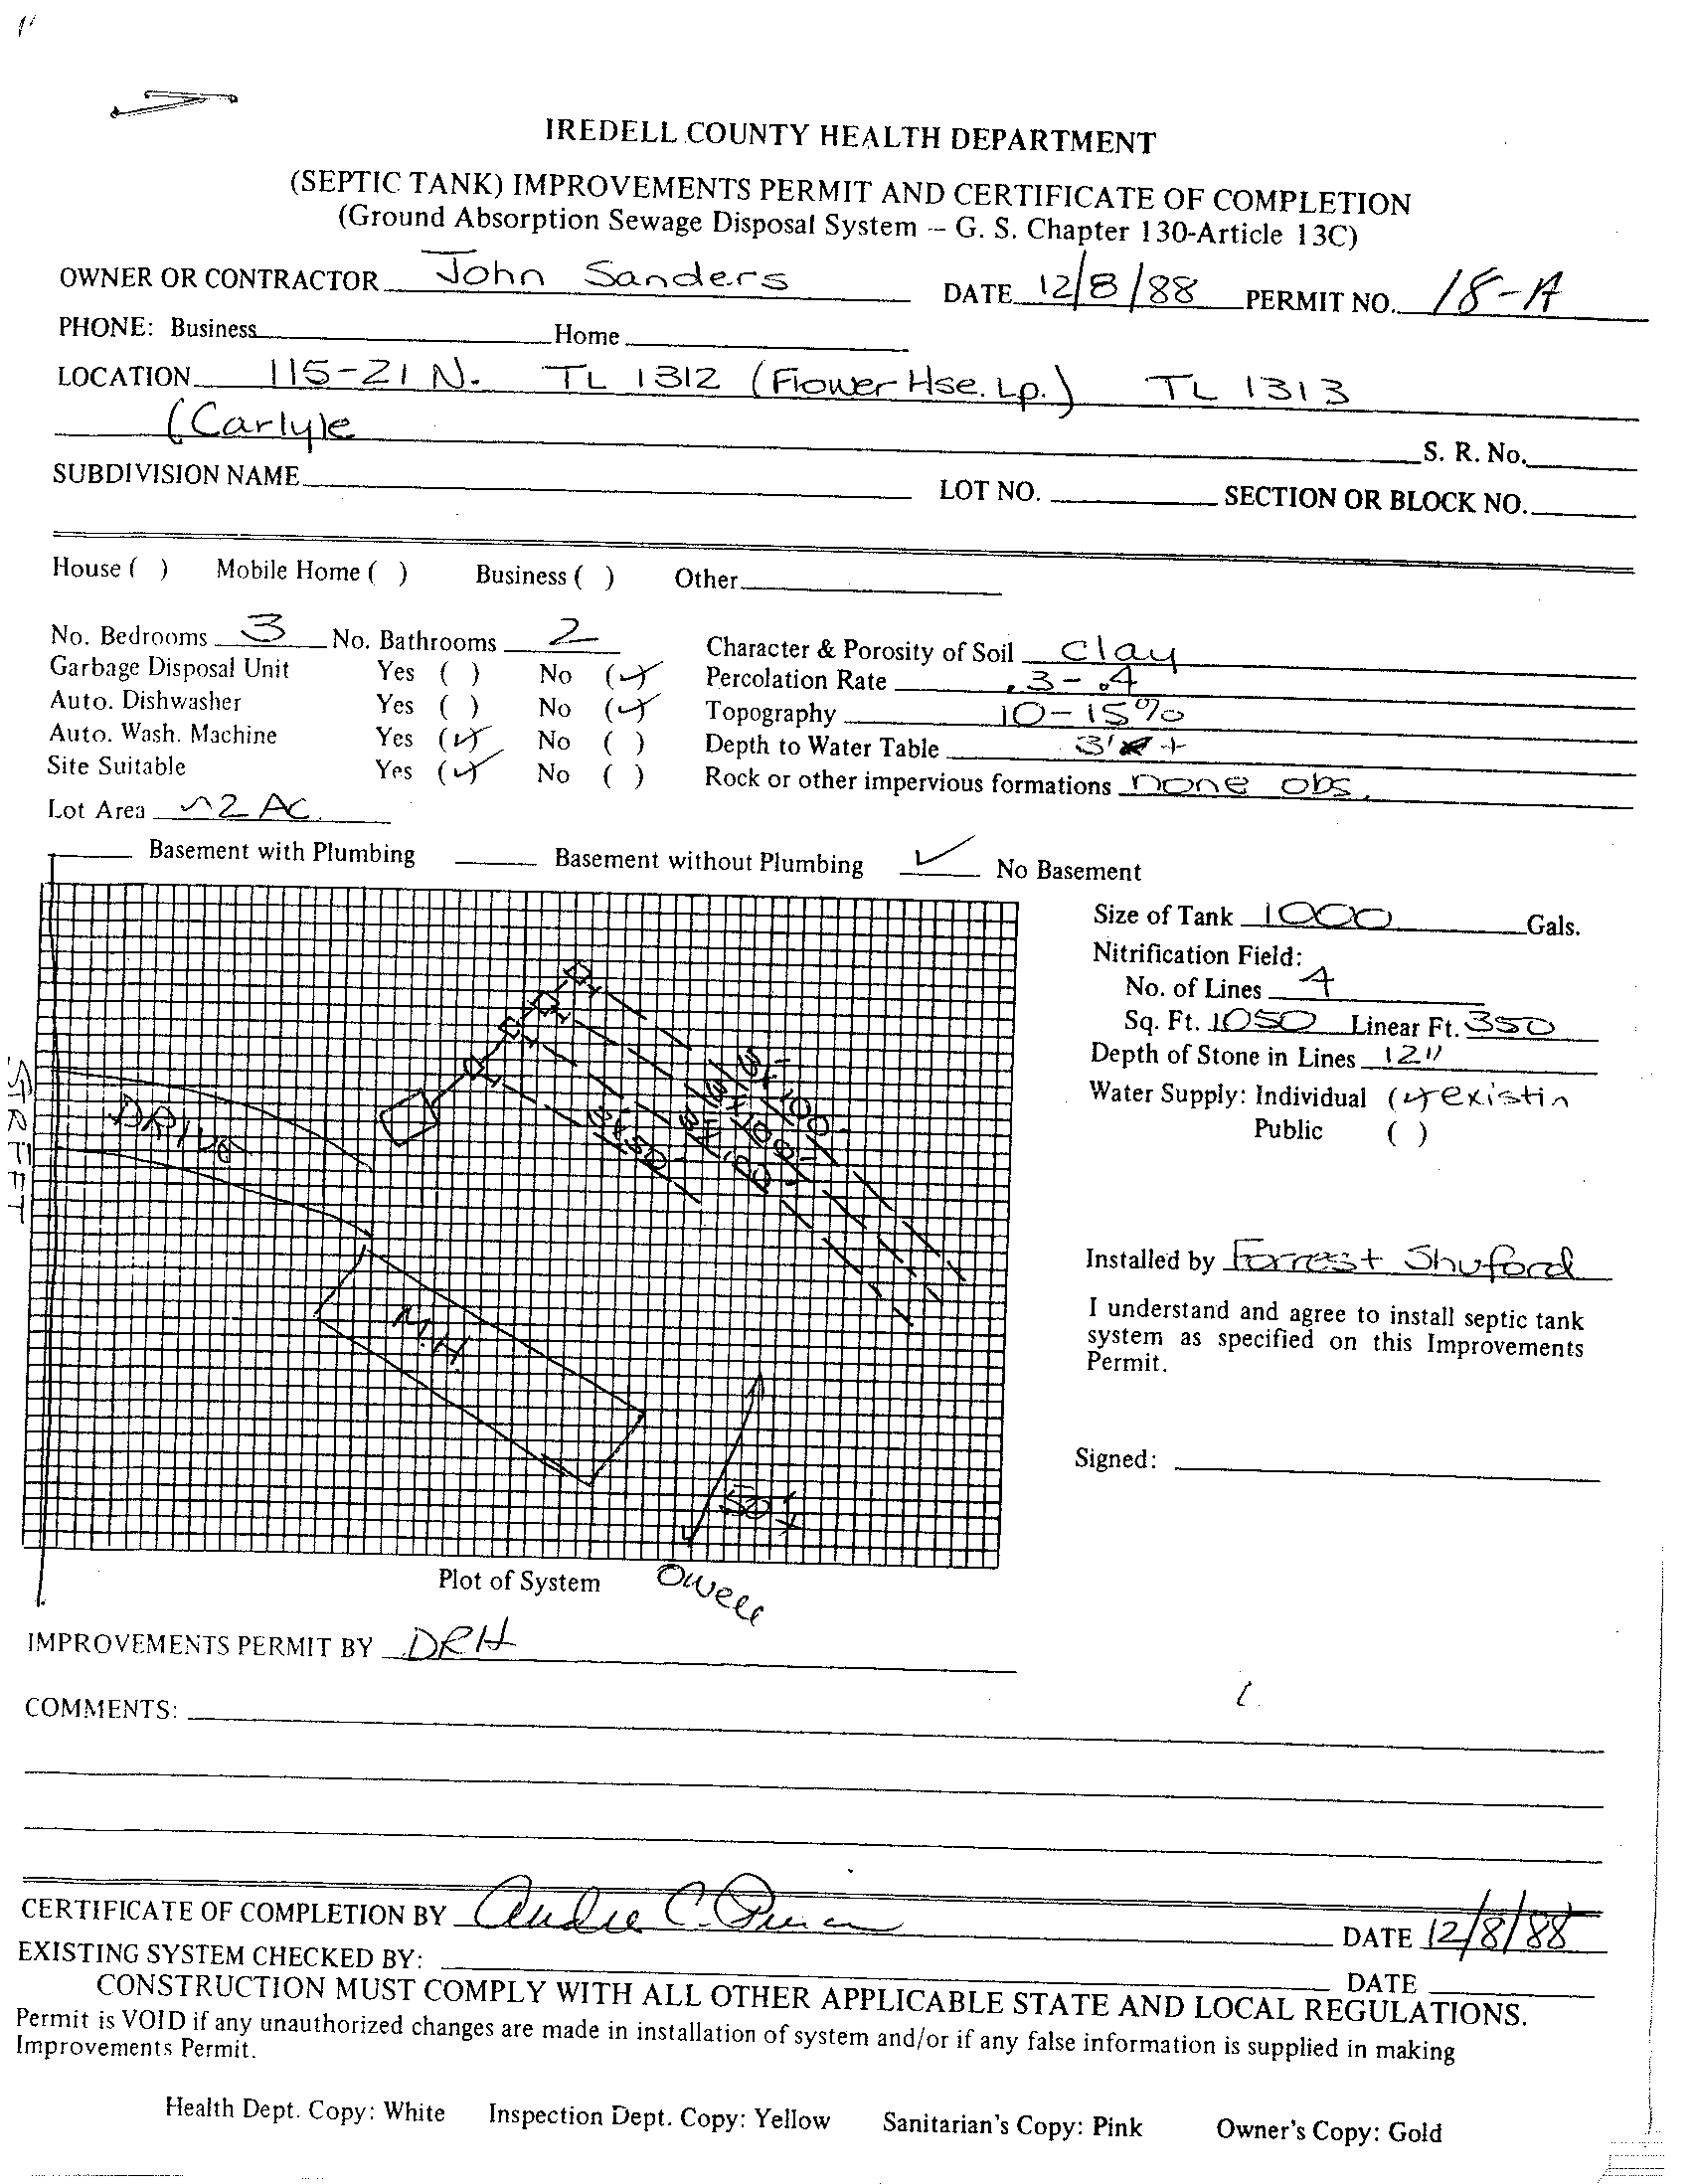 IREDELL COUNTY HEALTH DEPARTMENT
(SEPTIC TANK) IMPROVEMENTS PERMIT AND CERTIFICATE OF COMPLETION
(Ground Absorption Sewage Disposal System -- G. S. Chapter 130-Article 13C)
OWNER OR CONTRACTOR John Sanders DATE 12/8/88 PERMIT NO. 18-A
PHONE: Business Home
LOCATION 115-21 N. TL 1312 (Flower Hse. Lp.) TL 1313
(Carlyle
S. R. No.
SUBDIVISION NAME LOT NO. SECTION OR BLOCK NO.
House ( ) Mobile Home ( ) Business ( ) Other
No. Bedrooms 3 No. Bathrooms 2 Character & Porosity of Soil Clay
Garbage Disposal Unit Yes ( ) No (✓) Percolation Rate .3-.4
Auto. Dishwasher Yes ( ) No (✓) Topography 10-15%
Auto. Wash. Machine Yes (✓) No ( ) Depth to Water Table 3' +
Site Suitable Yes (✓) No ( ) Rock or other impervious formations none obs.
Lot Area ~2 AC.
Basement with Plumbing Basement without Plumbing ✓ No Basement
Size of Tank 1000 Gals.
Nitrification Field:
No. of Lines 4
Sq. Ft. 1050 Linear Ft. 350
Depth of Stone in Lines 12"
Water Supply: Individual (✓) existin
Public ( )
STREET
DRIVE
3'x100'
3'x100'
3'x100'
3'x50'
M.H.
50'+
Well
Installed by Forrest Shuford
I understand and agree to install septic tank
system as specified on this Improvements
Permit.
Signed:
Plot of System
IMPROVEMENTS PERMIT BY DRH
COMMENTS:
CERTIFICATE OF COMPLETION BY C. DATE 12/8/88
EXISTING SYSTEM CHECKED BY: DATE
CONSTRUCTION MUST COMPLY WITH ALL OTHER APPLICABLE STATE AND LOCAL REGULATIONS.
Permit is VOID if any unauthorized changes are made in installation of system and/or if any false information is supplied in making
Improvements Permit.
Health Dept. Copy: White Inspection Dept. Copy: Yellow Sanitarian's Copy: Pink Owner's Copy: Gold